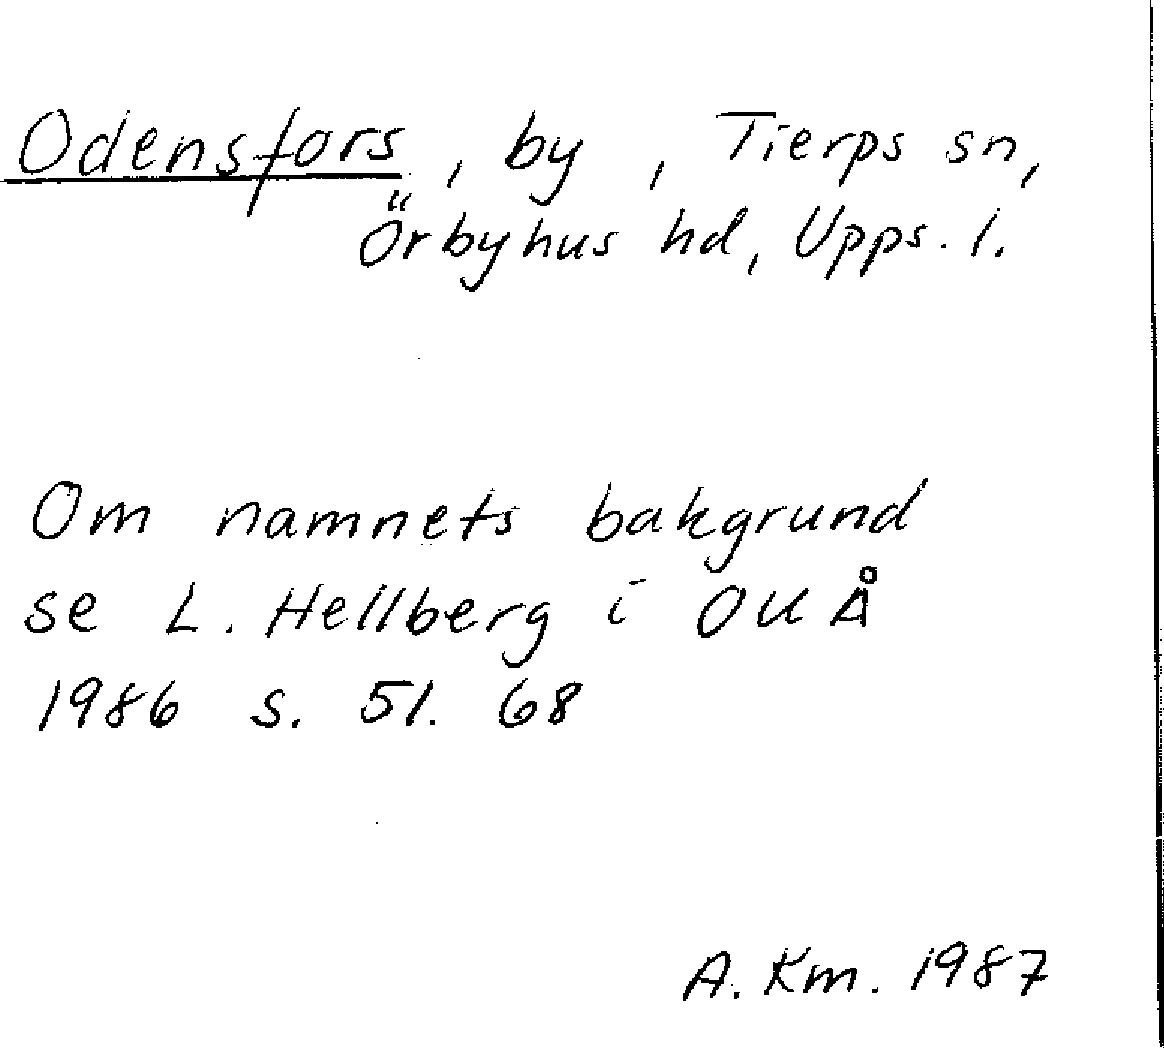 Odensfors, by, Tierps sn,
Örbyhus hd, Upps. l.
Om namnets bakgrund
se L. Hellberg i OUÅ
1986 s. 51. 68
A. Km. 1987